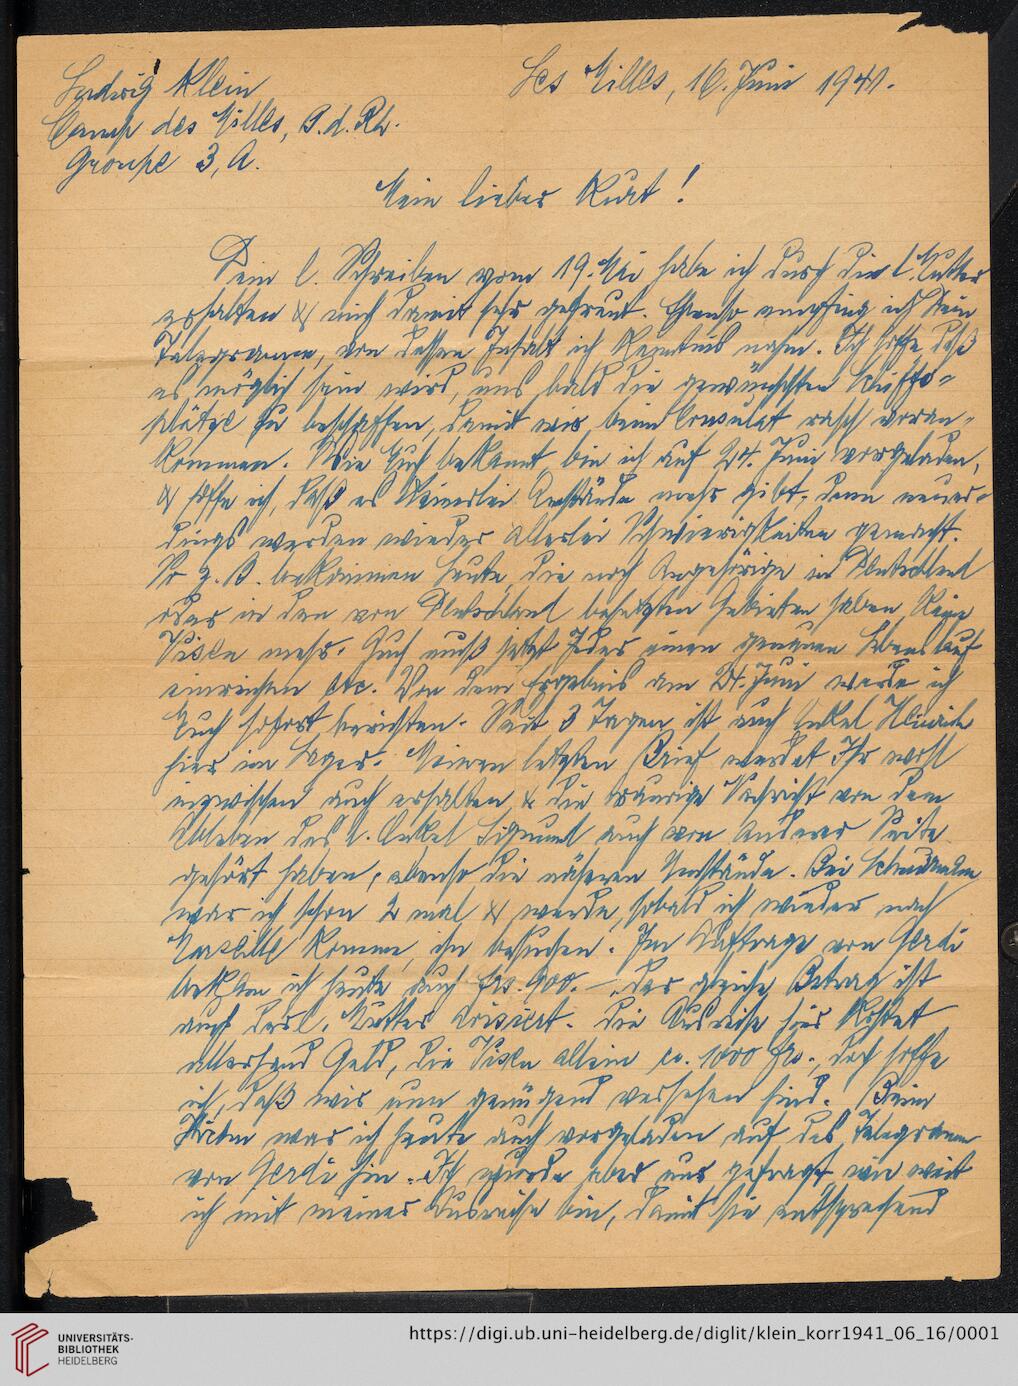 Ludwig Klein
Camp des Milles, B.d.Rh.
Groupe 3, A.
Les Milles, 16. Juni 1941.
Mein lieber Kurt!
Dein l. Schreiben vom 19. Mai habe ich durch die l. Mutter
erhalten & mich damit sehr gefreut. Ebenso empfing ich Dein
Telegramm, von dessen Inhalt ich Kenntnis nahm. Ich hoffe, daß
es möglich sein wird, uns bald die gewünschten Schiffs-
plätze zu beschaffen, damit wir beim Consulat rasch voran-
kommen. Wie Euch bekannt bin ich auf 24. Juni vorgeladen,
& hoffe ich, daß es keinerlei Anstände mehr gibt, denn neuer-
dings werden wieder allerlei Schwierigkeiten gemacht.
So z. B. bekommen Leute, die noch Angehörige in Deutschland
oder in den von Deutschland besetzten Gebieten haben, keine
Visen mehr. Auch muß jetzt Jeder einen genauen Lebenslauf
einreichen etc. Von dem Ergebnis am 24. Juni werde ich
Euch sofort berichten. Seit 3 Tagen ist auch Onkel
hier im Lager. Meinen letzten Brief werdet Ihr wohl
inzwischen auch erhalten & die traurige Nachricht von dem
Ableben des l. Onkel Sigmund auch von anderer Seite
gehört haben, ebenso die näheren Umstände. Bei
war ich schon 2 mal & werde, sobald ich wieder nach
Marseille komme, ihn besuchen. Im Auftrage von Gerdi
bekam ich heute auch frs. 900.-, der gleiche Betrag ist
auch der l. Mutter avisiert. Die Ausreise hier kostet
allerhand Geld, die Visen allein ca. 1000 frs., doch hoffe
ich, daß wir nun genügend versehen sind. Beim
war ich heute auch vorgeladen auf das Telegramm
von Gerdi hin. Ich wurde aber nur gefragt, wie weit
ich mit meiner Ausreise bin, damit sie entsprechend
UNIVERSITÄTS-
BIBLIOTHEK
HEIDELBERG
https://digi.ub.uni-heidelberg.de/diglit/klein_korr1941_06_16/0001